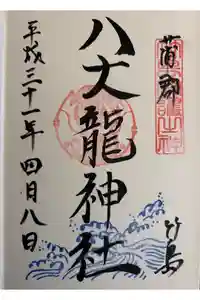 蒲郡
八大龍神社
平成三十一年四月八日
竹島